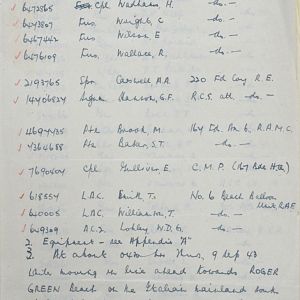 6472865 Cpl Wadhams, H. -do-
6473807 Fus. Wright, C. -do-
6467442 Fus. Wilson, E -do-
6476108 Fus. Wallace, R. -do-
2193765 Spr Caswell A.R. 220 Fd. Coy R.E.
14406824 G.F. R.C.S. att -do-
4694435 Pte Brook, M. 164 Fd. Amb, R.A.M.C.
4264688 Pte Baker, S.T. -do-
7690404 Cpl Gulliver, E. C.M.P. (167 Bde Att)
618554 L.A.C. Smith T. No. 6 Beach Balloon Unit, R.A.F.
640005 L.A.C. Williams, T. -do-
649309 A.C.2. Lobley W.D.G. -do-
2. Equipment - see Appendix "A"
3. At about hrs Thurs, 9 Sep 43
while moving in line ahead towards ROGER
GREEN Beach on the Italian mainland south